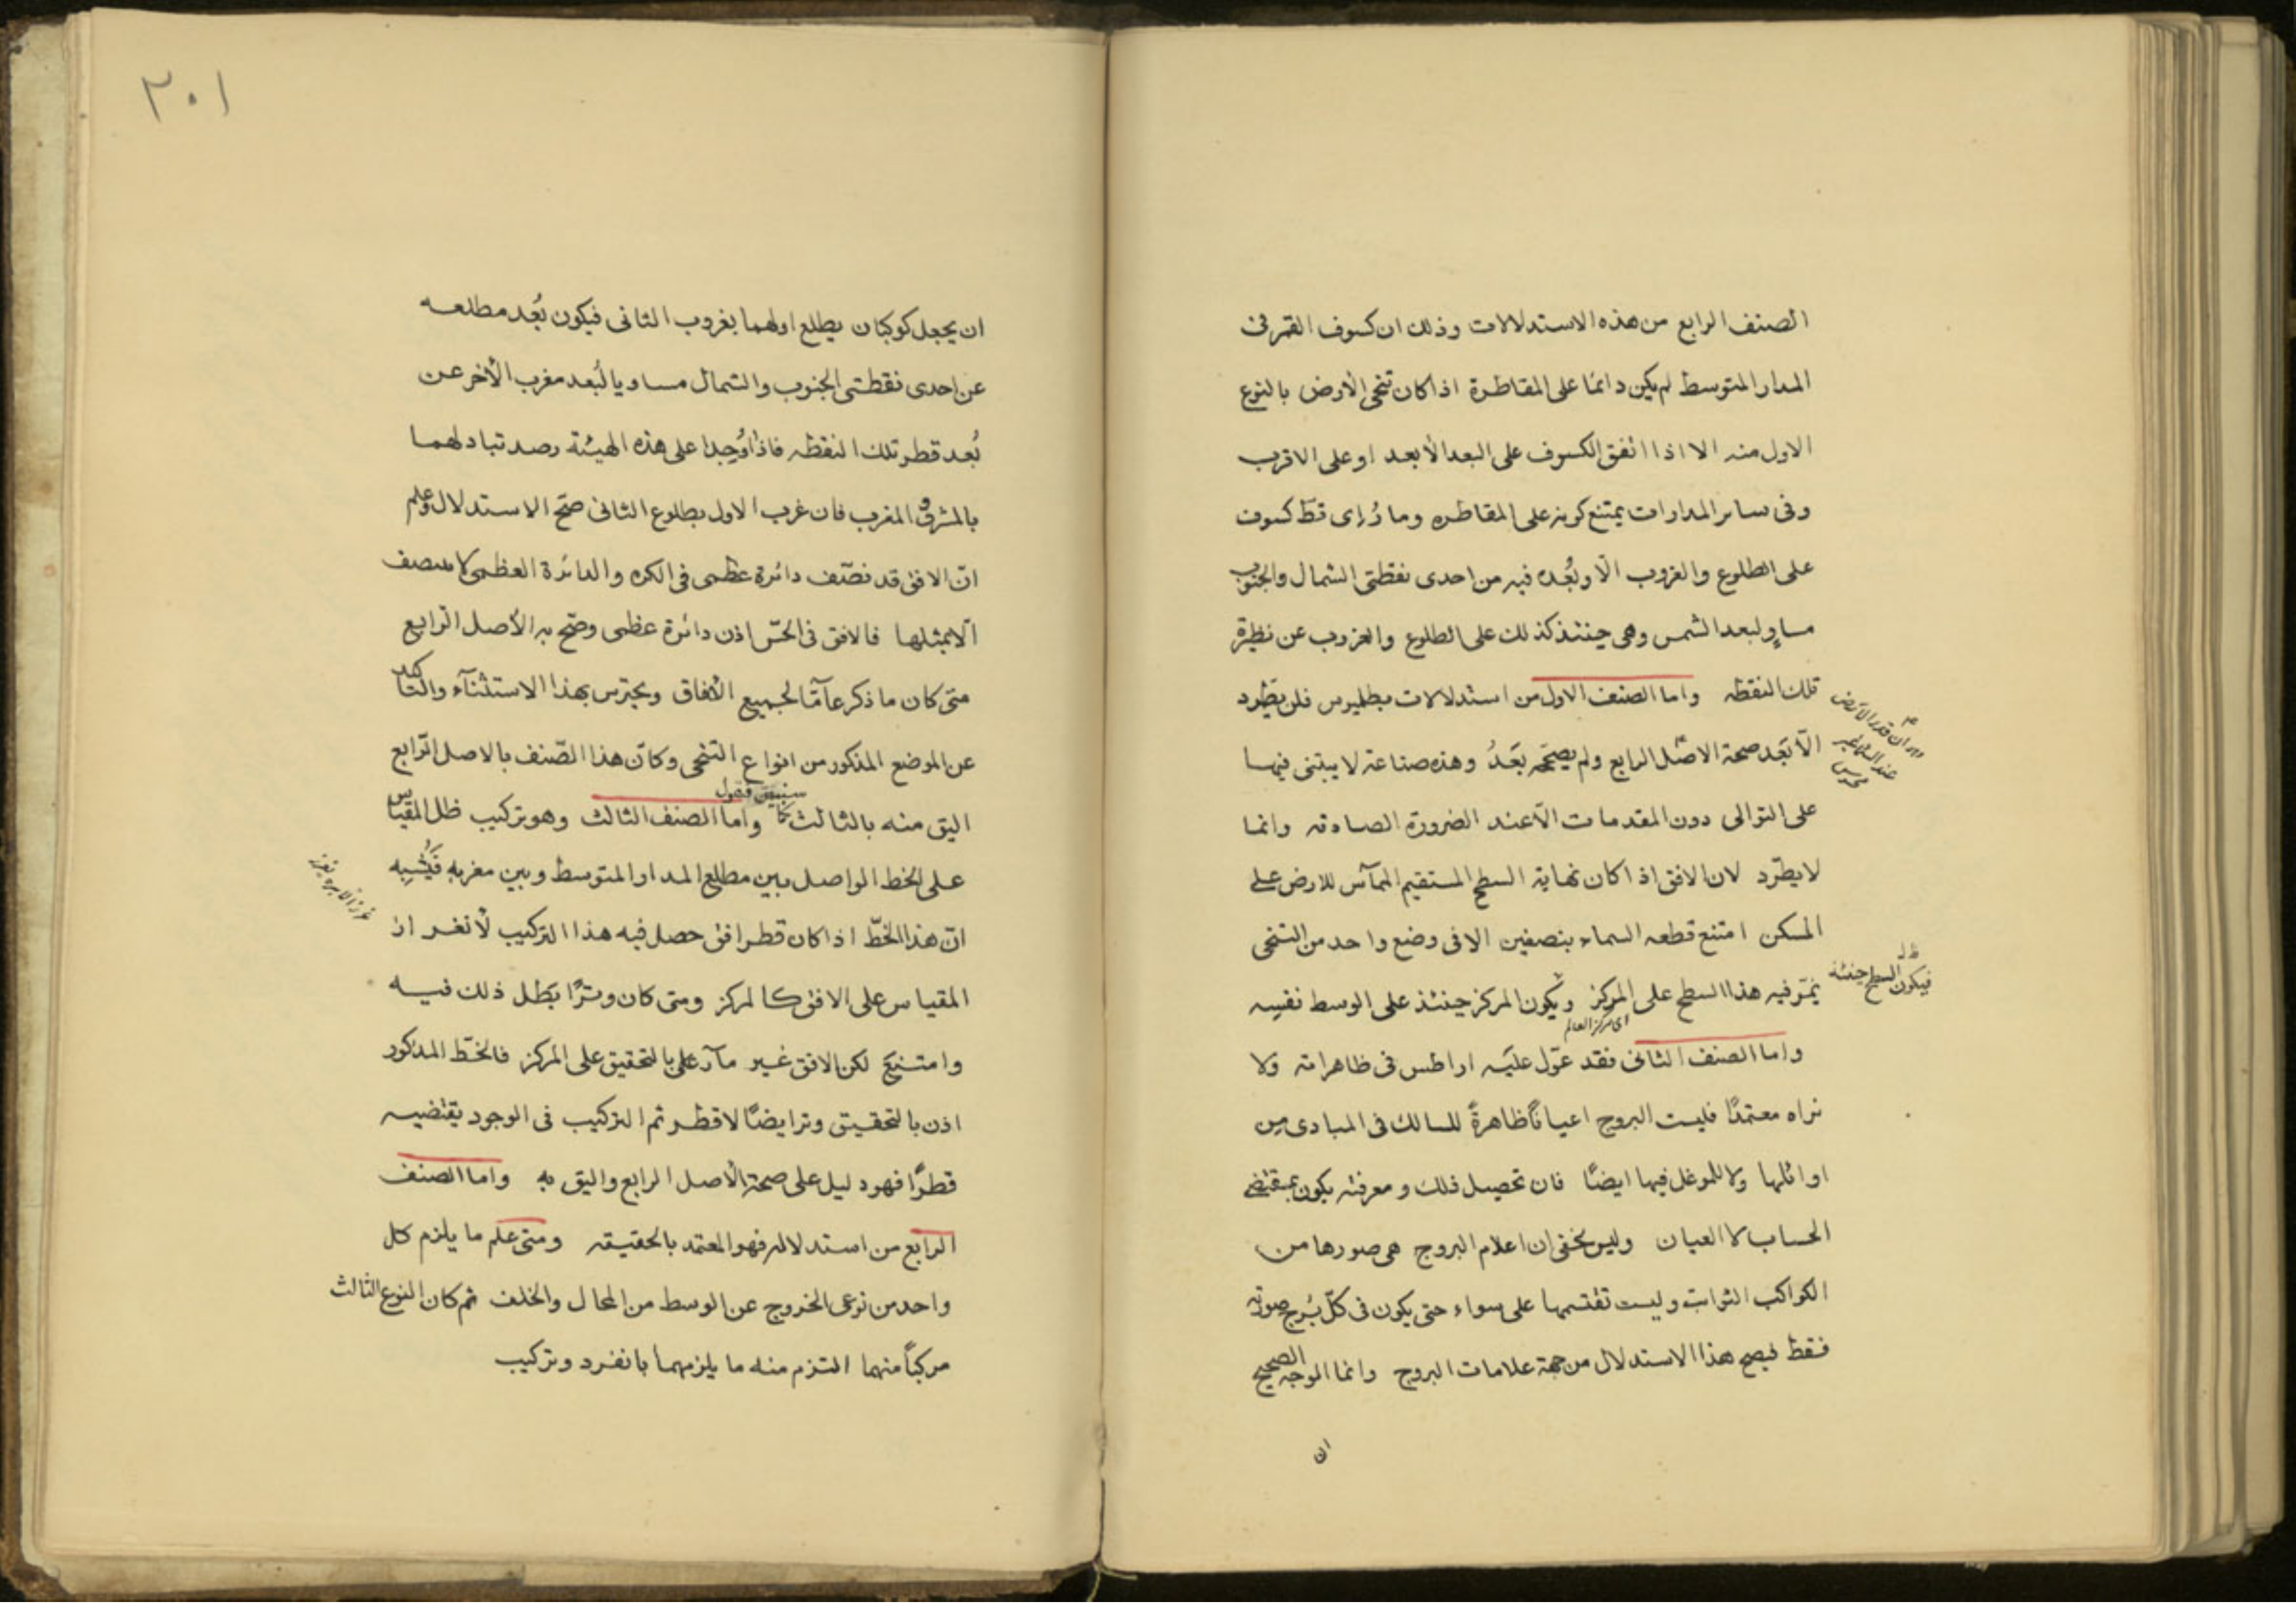 الصنف الرابع من هذه الاستدلالات وذلك ان كسوف القمر فى
المدار المتوسط لم يكن دائما على المقاطرة اذا كان تنحى الارض بالنوع
الاول منه الا اذا اتفق الكسوف على البعد الأبعد او على الاقرب
وفى سائر المدارات يمتنع كونه على المقاطره وما رُاى قط كسوف
على الطلوع والغروب الّا وبُعده فيه من احدى نقطتى الشمال والجنوب
مساوٍ لبعد الشمس وهى حينئذ كذلك على الطلوع والغروب عن نظيرة
تلك النقطه واما الصنف الاول من استدلالات بطلميوس فلن يطّرد
الّا بَعد صحة الاصل الرابع ولم يصحّحه بَعدُ وهذه صناعة لا يبتنى فيها
على التوالى دون المقدمات الّا عند الضرورة الصادقه وانما
لا يطّرد لان الافق اذا كان نهاية السطح المستقيم المماسّ للارض على
المسكن امتنع قطعه السماء بنصفين الا فى وضع واحد من التنحى
يمّر فيه هذا السطح على المركز ويكون المركز حينئذ على الوسط نفسِه
اى مركز العالم
واما الصنف الثانى فقد عوّل عليَه اراطس فى ظاهراته ولا
نراه معتمدًا فليست البروج اعيانًا ظاهرةً للسالك فى المبادى من
اوائلها ولا للموغل فيها ايضًا فان تحصيل ذلك ومعرفته يكون بمقتضى
الحساب لا العيان وليس يخفى ان اعلام البروج هى صورها من
الكواكب الثوابت وليست تقتسمها على سواء حتى يكون فى كلّ بُرج صورته
فقط فيصح هذا الاستدلال من جهة علامات البروج وانما الوجه الصحيح
ان
ان قدر الارض
عند السماء غير
محسوس
فيكون السطح حينئذ
٣٠١
ان يجعل كوكبان يطلع اولهما بغروب الثانى فيكون بُعد مطلعه
عن احدى نقطتى الجنوب والشمال مساويا لبُعد مغرب الأخر عن
بُعد قطر تلك النقطه فاذا وُجدا على هذه الهيئة رصد تبادلهما
بالمشرق والمغرب فان غرب الاول بطلوع الثانى صحّ الاستدلال وعلم
انّ الافق قد نصّف دائرة عظمى فى الكره والدائرة العظمى لا ينصف
الّا بمثلها فالافق فى الحسّ اذن دائرة عظمى وصحّ به الأصل الرابع
متى كان ما ذكر عامّا لجميع الأفاق ويحترس بهذا الاستثنآء والتاكيد
عن الموضع المذكور من انواع التنحى وكانّ هذا الصّنف بالاصل الرّابع
اليق منه بالثالث كما سنبيّن فنقول واما الصنف الثالث وهو تركيب ظل المقياس
على الخط الواصل بين مطلع المدار المتوسط وبين مغربه فيُشبِه
انّ هذا الخطّ اذا كان قطر افق حصل فيه هذا التركيب لأنغراز
المقياس على الافق كالمركز ومتى كان وترًا بَطل ذلك فيه
وامتنع لكن الافق غير مارّ على بالتحقيق على المركز فالخطّ المذكور
اذن بالتحقيق وتر ايضًا لا قطر ثم التركيب فى الوجود يقتضيه
قطرًا فهو دليل على صحة الأصل الرابع واليق به واما الصنف
الرابع من استدلاله فهو المعتمد بالحقيقه ومتى علم ما يلزم كل
واحد من نوعى الخروج عن الوسط من المحال والخلف ثم كان النوع الثالث
مركباً منهما التزم منه ما يلزمهما بانفرد وتركيب